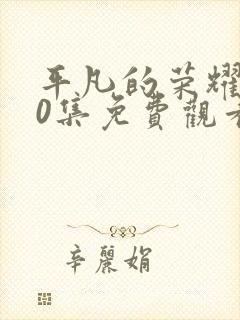 平凡的荣耀
0集免費觀看
辛麗娟